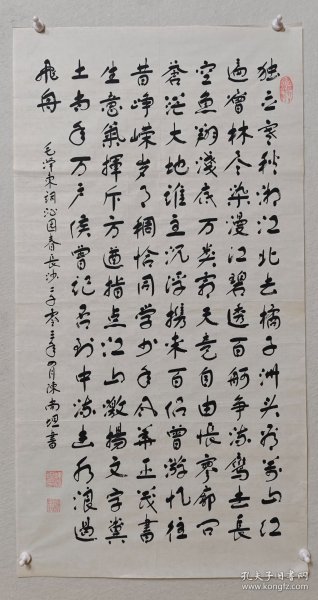 独立寒秋湘江北去橘子洲头看萬山红
遍層林尽染漫江碧透百舸争流鹰击長
空鱼翔浅底万类霜天竞自由怅寥廓问
苍茫大地谁主沉浮携来百侣曾游忆往
昔峥嵘岁月稠恰同学少年风华正茂书
生意氣挥斥方遒指点江山激揚文字粪
土当年万户侯曾记否到中流击水浪遏
飞舟
毛泽东词沁园春長沙二千零三年四月陈尚坦書
孔夫子旧书网
www.kongfz.com